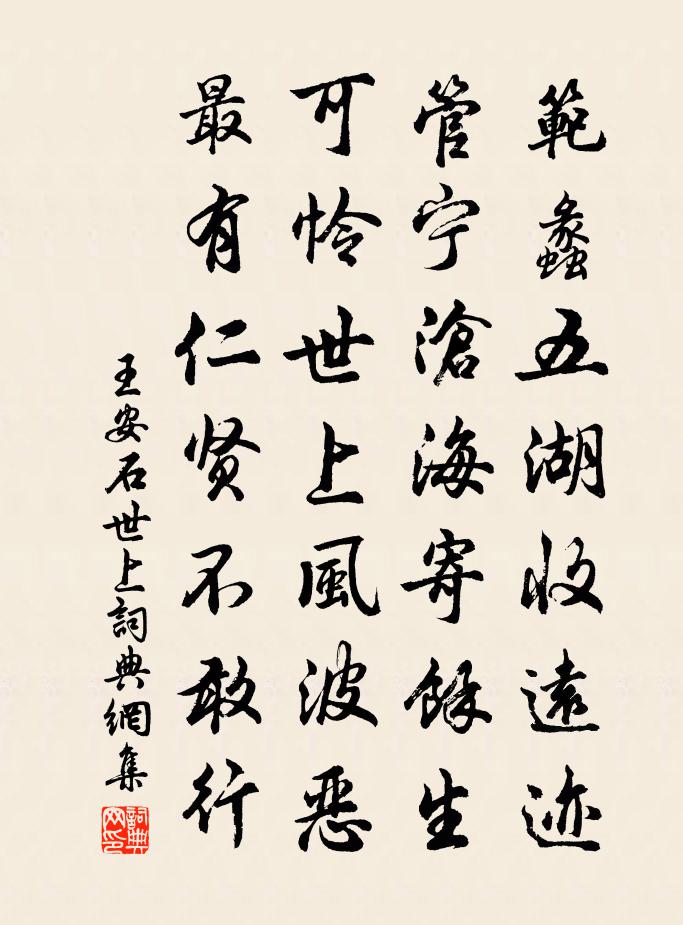 範蠡五湖收遠迹
管宁滄海寄餘生
可怜世上風波恶
最有仁贤不敢行
王安石世上詞典網集
詞典
网印